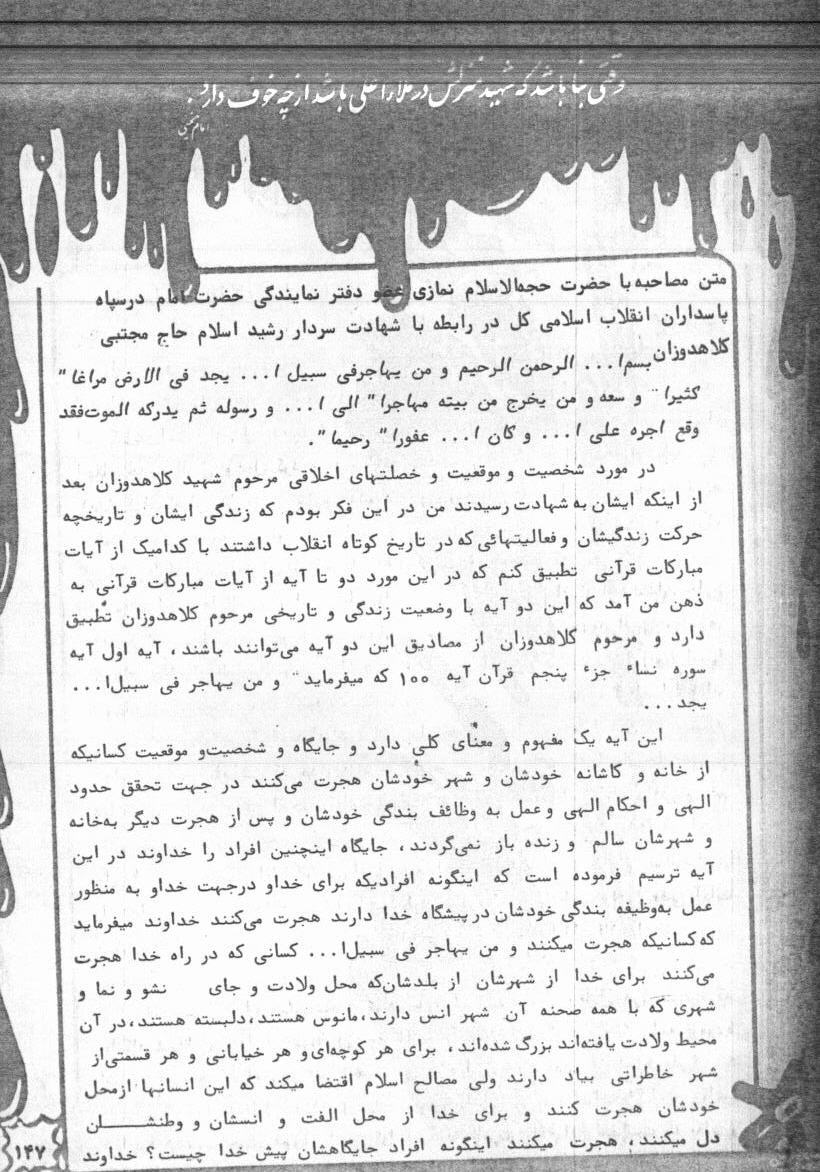 وقتی بنا باشد که شهید منزلش در ملاء اعلی باشد از چه خوف دارد.
امام خمینی
متن مصاحبه با حضرت حجه‌الاسلام نمازی عضو دفتر نمایندگی حضرت امام درسپاه
پاسداران انقلاب اسلامی کل در رابطه با شهادت سردار رشید اسلام حاج مجتبی
کلاهدوزان
بسم‌ا... الرحمن الرحیم و من یهاجرفی سبیل ا... یجد فی الارض مراغا"
کثیرا" و سعه و من یخرج من بیته مهاجرا" الی ا... و رسوله ثم یدرکه الموت‌فقد
وقع اجره علی ا... و کان ا... عفورا" رحیما".
در مورد شخصیت و موقعیت و خصلتهای اخلاقی مرحوم شهید کلاهدوزان بعد
از اینکه ایشان به شهادت رسیدند من در این فکر بودم که زندگی ایشان و تاریخچه
حرکت زندگیشان و فعالیتهائی که در تاریخ کوتاه انقلاب داشتند با کدامیک از آیات
مبارکات قرآنی تطبیق کنم که در این مورد دو تا آیه از آیات مبارکات قرآنی به
ذهن من آمد که این دو آیه با وضعیت زندگی و تاریخی مرحوم کلاهدوزان تطبیق
دارد و مرحوم کلاهدوزان از مصادیق این دو آیه می‌توانند باشند، آیه اول آیه
سوره نساء جزء پنجم قرآن آیه ۱۰۰ که میفرماید" و من یهاجر فی سبیل‌ا...
یجد...
این آیه یک مفهوم و معنای کلی دارد و جایگاه و شخصیت‌و موقعیت کسانیکه
از خانه و کاشانه خودشان و شهر خودشان هجرت می‌کنند در جهت تحقق حدود
الهی و احکام الهی و عمل به وظائف بندگی خودشان و پس از هجرت دیگر به‌خانه
و شهرشان سالم و زنده باز نمی‌گردند، جایگاه اینچنین افراد را خداوند در این
آیه ترسیم فرموده است که اینگونه افرادیکه برای خداو درجهت خداو به منظور
عمل به‌وظیفه بندگی خودشان در پیشگاه خدا دارند هجرت می‌کنند خداوند میفرماید
که کسانیکه هجرت میکنند و من یهاجر فی سبیل‌ا... کسانی که در راه خدا هجرت
می‌کنند برای خدا از شهرشان از بلدشان‌که محل ولادت و جای نشو و نما و
شهری که با همه صحنه آن شهر انس دارند، مانوس هستند، دلبسته هستند، در آن
محیط ولادت یافته‌اند بزرگ شده‌اند، برای هر کوچه‌ای‌و هر خیابانی و هر قسمتی‌از
شهر خاطراتی بیاد دارند ولی مصالح اسلام اقتضا میکند که این انسانها ازمحل
خودشان هجرت کنند و برای خدا از محل الفت و انسشان و وطنشــــان
دل میکنند، هجرت میکنند اینگونه افراد جایگاهشان پیش خدا چیست؟ خداوند
۱۴۷